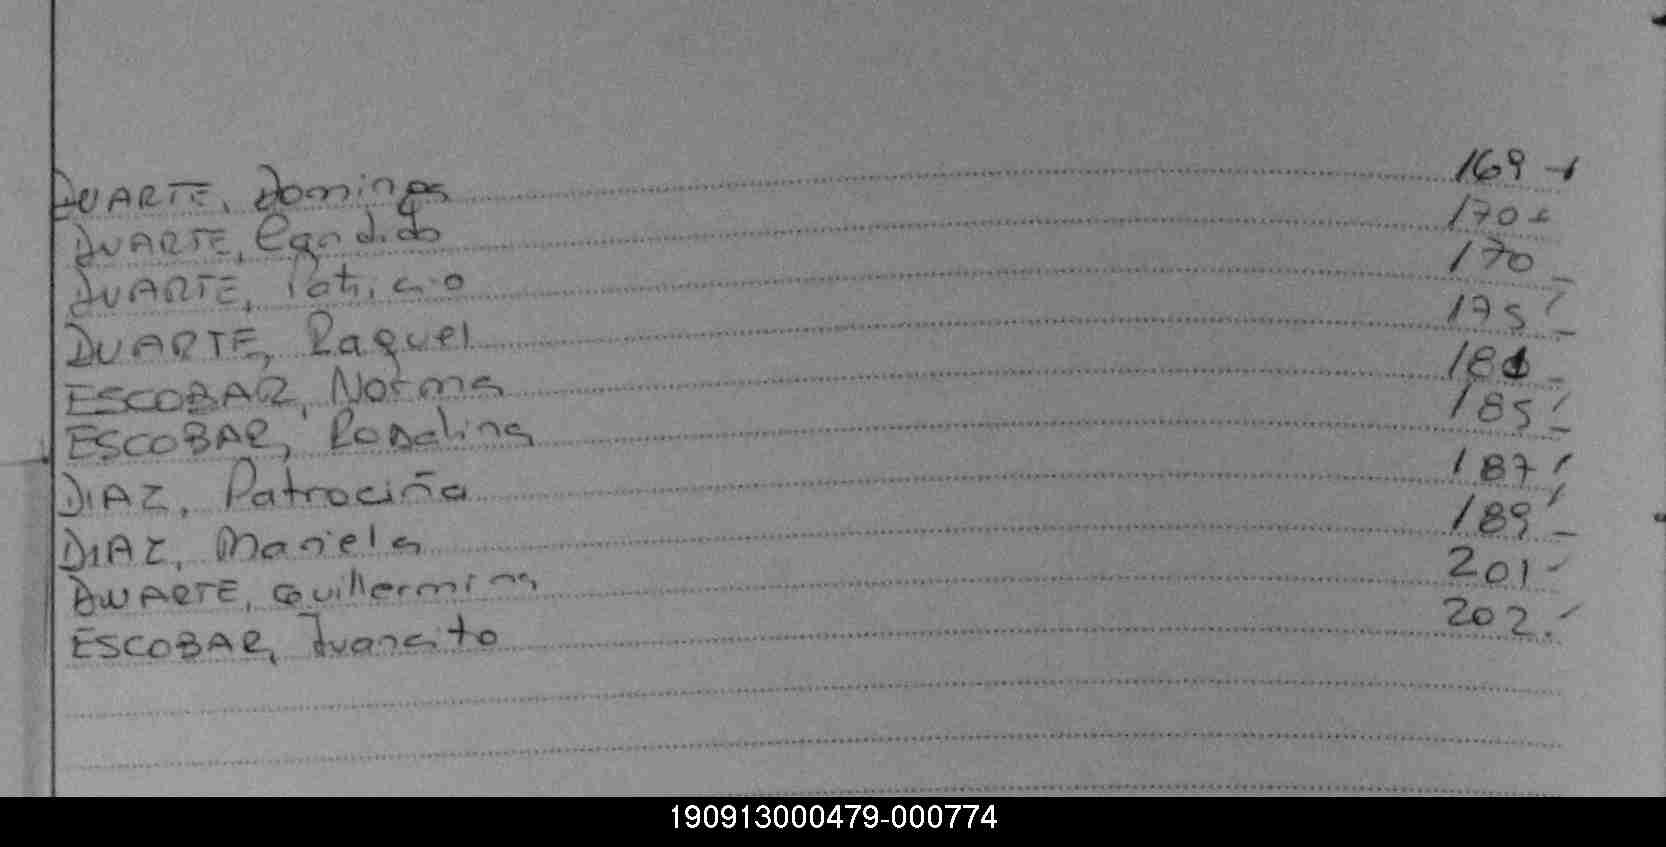 DUARTE, Domingos 169 -
DUARTE, Candido 170 -
DUARTE, Patricio 170 -
DUARTE, Raquel 175 -
ESCOBAR, Norma 181 -
ESCOBAR, Rosalina 185 -
DIAZ, Patrociña 187
DIAZ, Mariela 189 -
DUARTE, Guillermina 201 -
ESCOBAR, Juancito 202.-
190913000479-000774